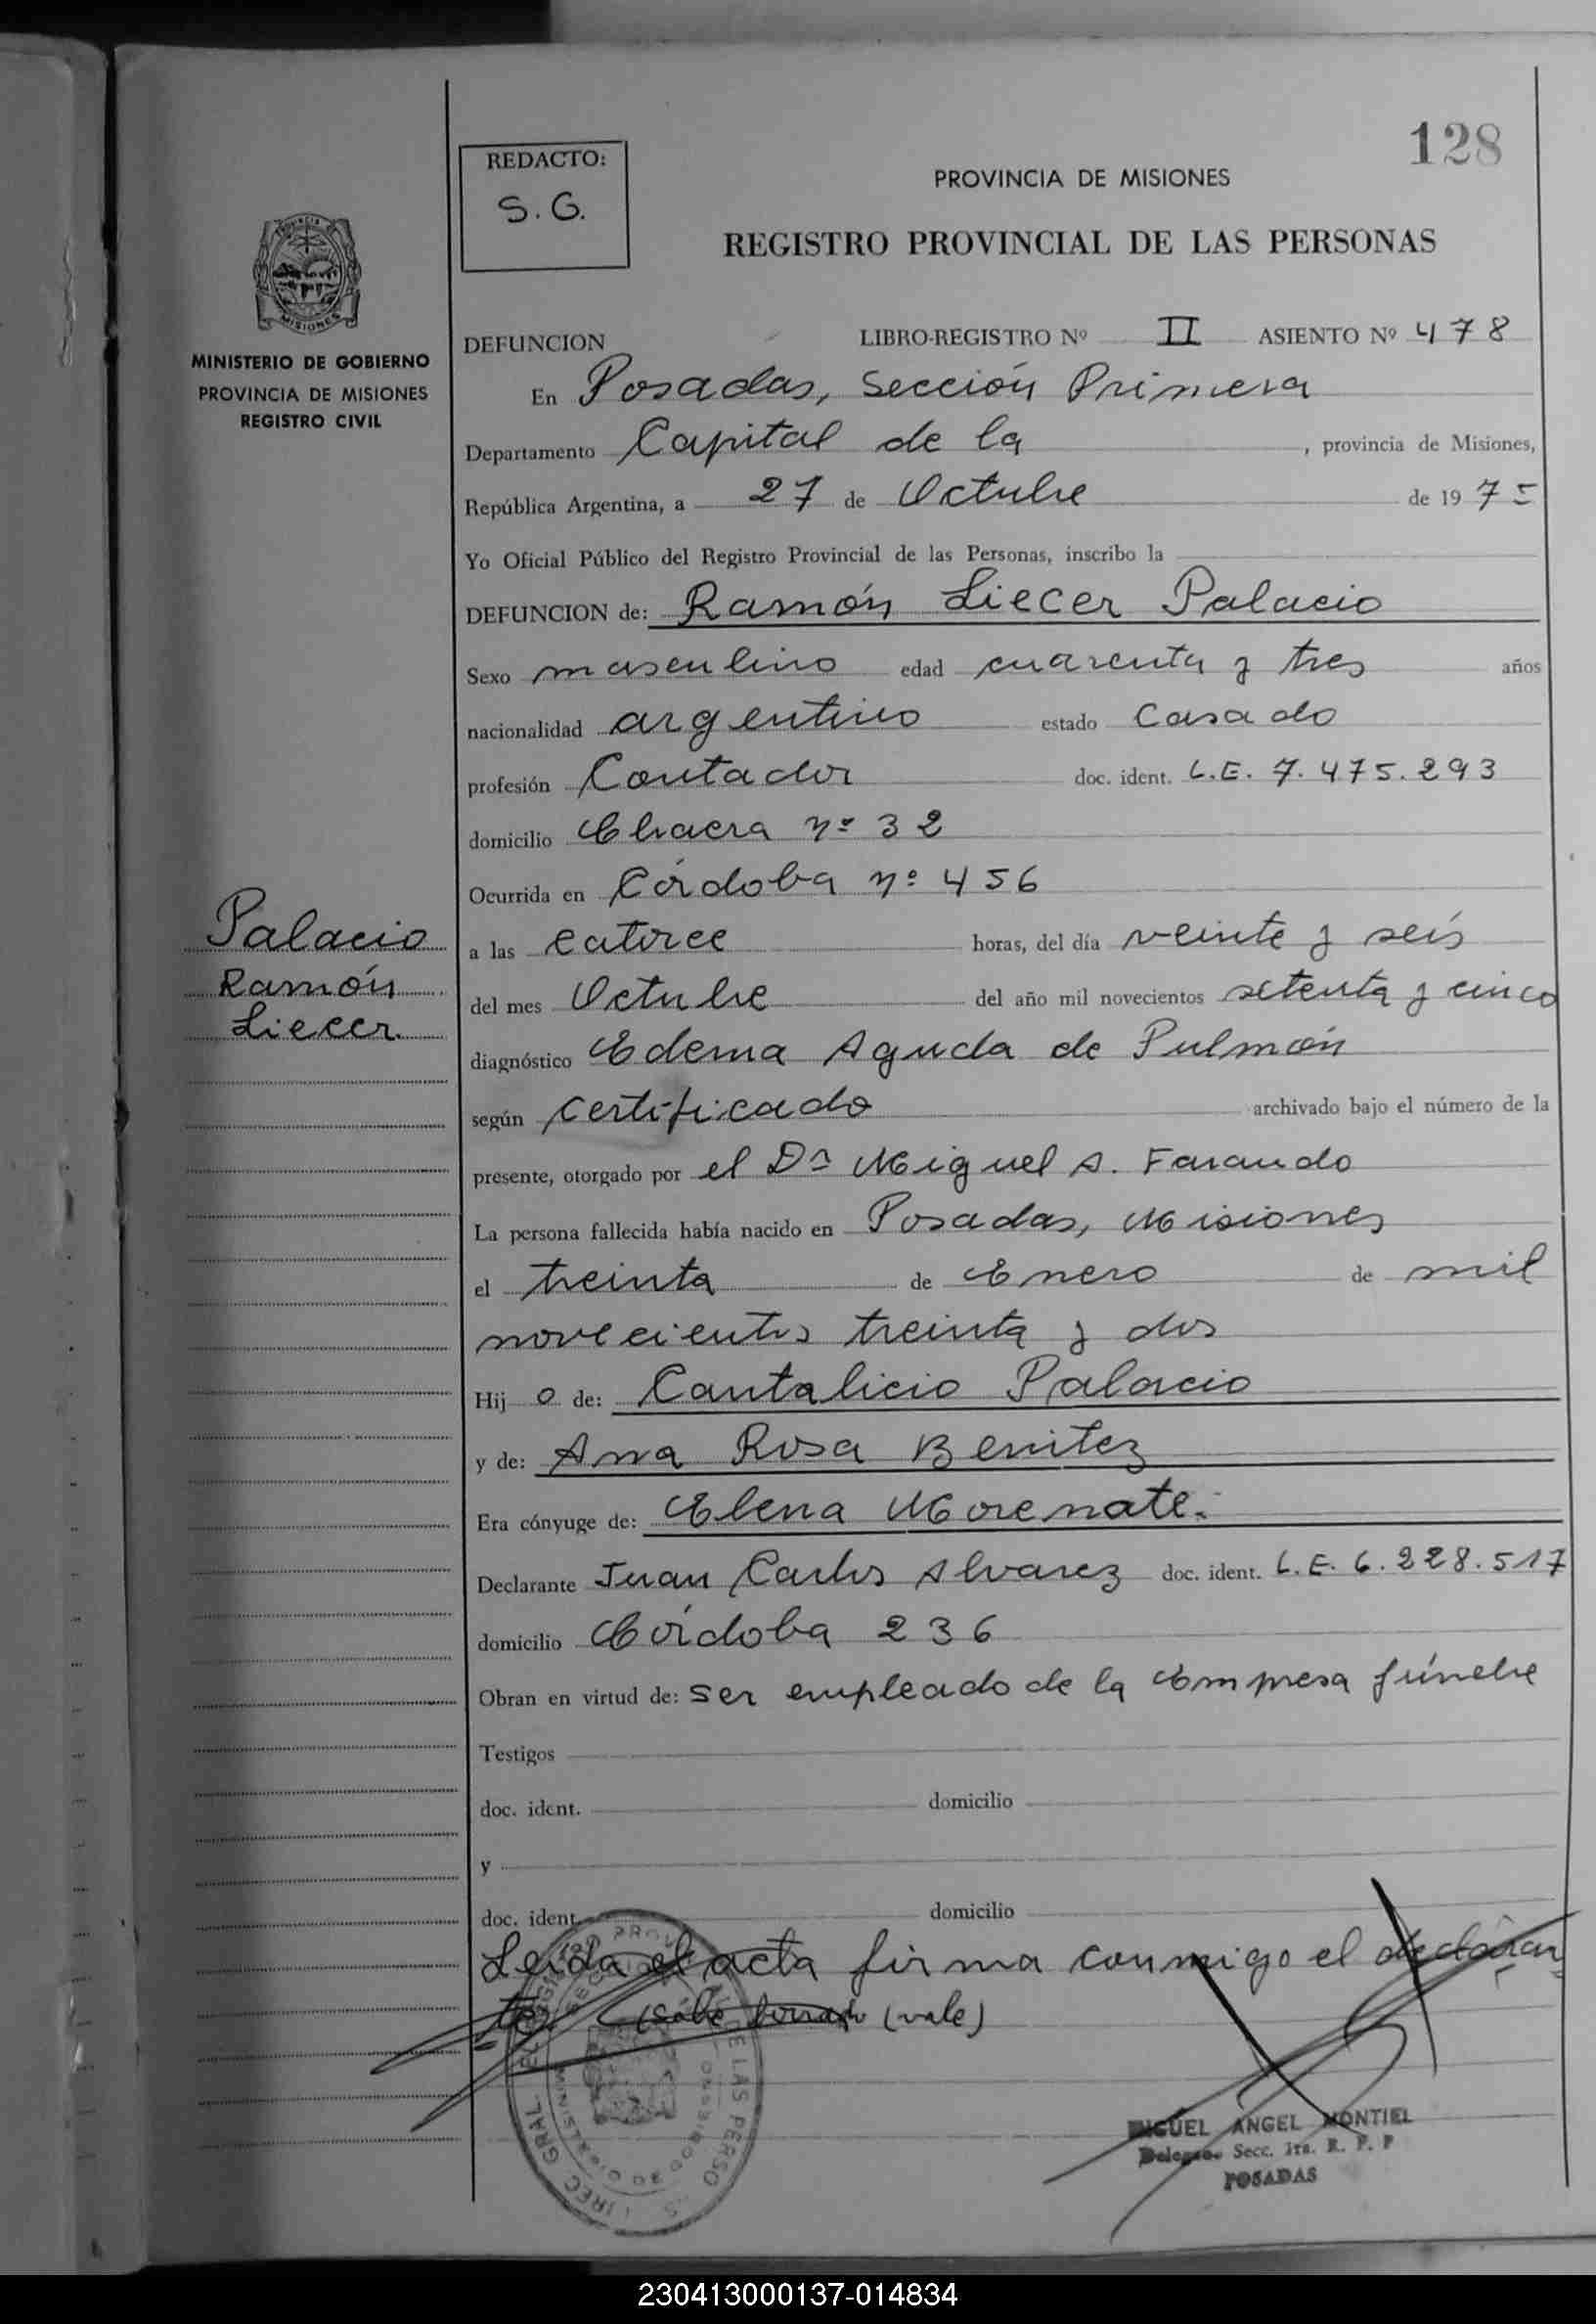 128
REDACTO:
S. G.
PROVINCIA DE MISIONES
REGISTRO PROVINCIAL DE LAS PERSONAS
MISIONES
MINISTERIO DE GOBIERNO
PROVINCIA DE MISIONES
REGISTRO CIVIL
DEFUNCION LIBRO-REGISTRO Nº II ASIENTO Nº 478
En Posadas, Sección Primera
Departamento Capital de la , provincia de Misiones,
República Argentina, a 27 de Octubre de 1975
Yo Oficial Público del Registro Provincial de las Personas, inscribo la
DEFUNCION de: Ramón Liecer Palacio
Sexo masculino edad cuarenta y tres años
nacionalidad argentino estado Casado
profesión Contador doc. ident. L.E. 7.475.293
domicilio Chacra nº 32
Ocurrida en Córdoba nº 456
Palacio
Ramón
Liecer
a las catorce horas, del día veinte y seis
del mes Octubre del año mil novecientos setenta y cinco
diagnóstico Edema Aguda de Pulmón
según certificado archivado bajo el número de la
presente, otorgado por el Dr Miguel A. Farando
La persona fallecida había nacido en Posadas, Misiones
el treinta de Enero de mil
novecientos treinta y dos
Hijo de: Cantalicio Palacio
y de: Ana Rosa Benitez
Era cónyuge de: Elena Morenate.
Declarante Juan Carlos Alvarez doc. ident. L.E. 6.228.517
domicilio Córdoba 236
Obran en virtud de: ser empleado de la Empresa fúnebre
Testigos
doc. ident. domicilio
y
doc. ident. domicilio
Leida el acta firma conmigo el declaran
te. (vale)
MIGUEL ANGEL MONTIEL
Delegado Secc. 1ra. R. P. P
POSADAS
230413000137-014834